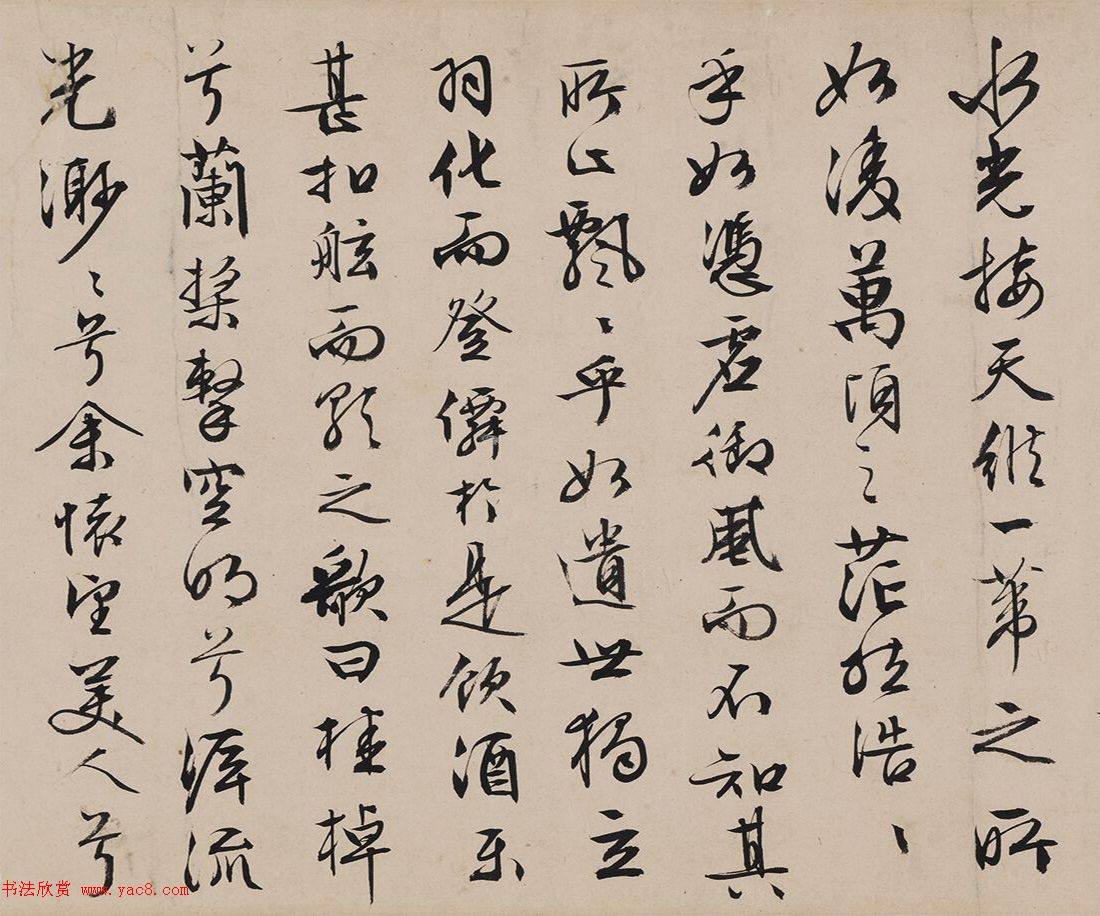 水光接天縱一葦之所
如淩萬頃之茫然浩〻
乎如憑虛御風而不知其
所止飄〻乎如遺世獨立
羽化而登僊於是飲酒樂
甚扣舷而歌之歌曰桂棹
兮蘭槳擊空明兮泝流
光渺〻兮余懷望美人兮
书法欣赏 www.yac8.com